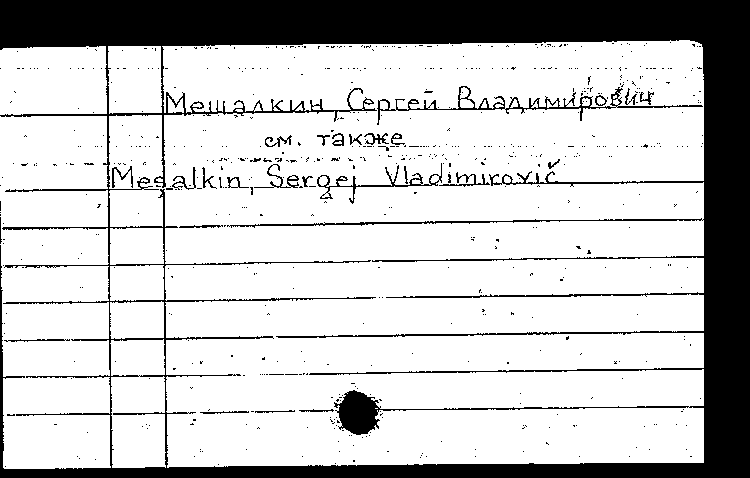 Мещалкин, Сергей Владимирович
см. также
Meşalkin, Sergej Vladimirovič